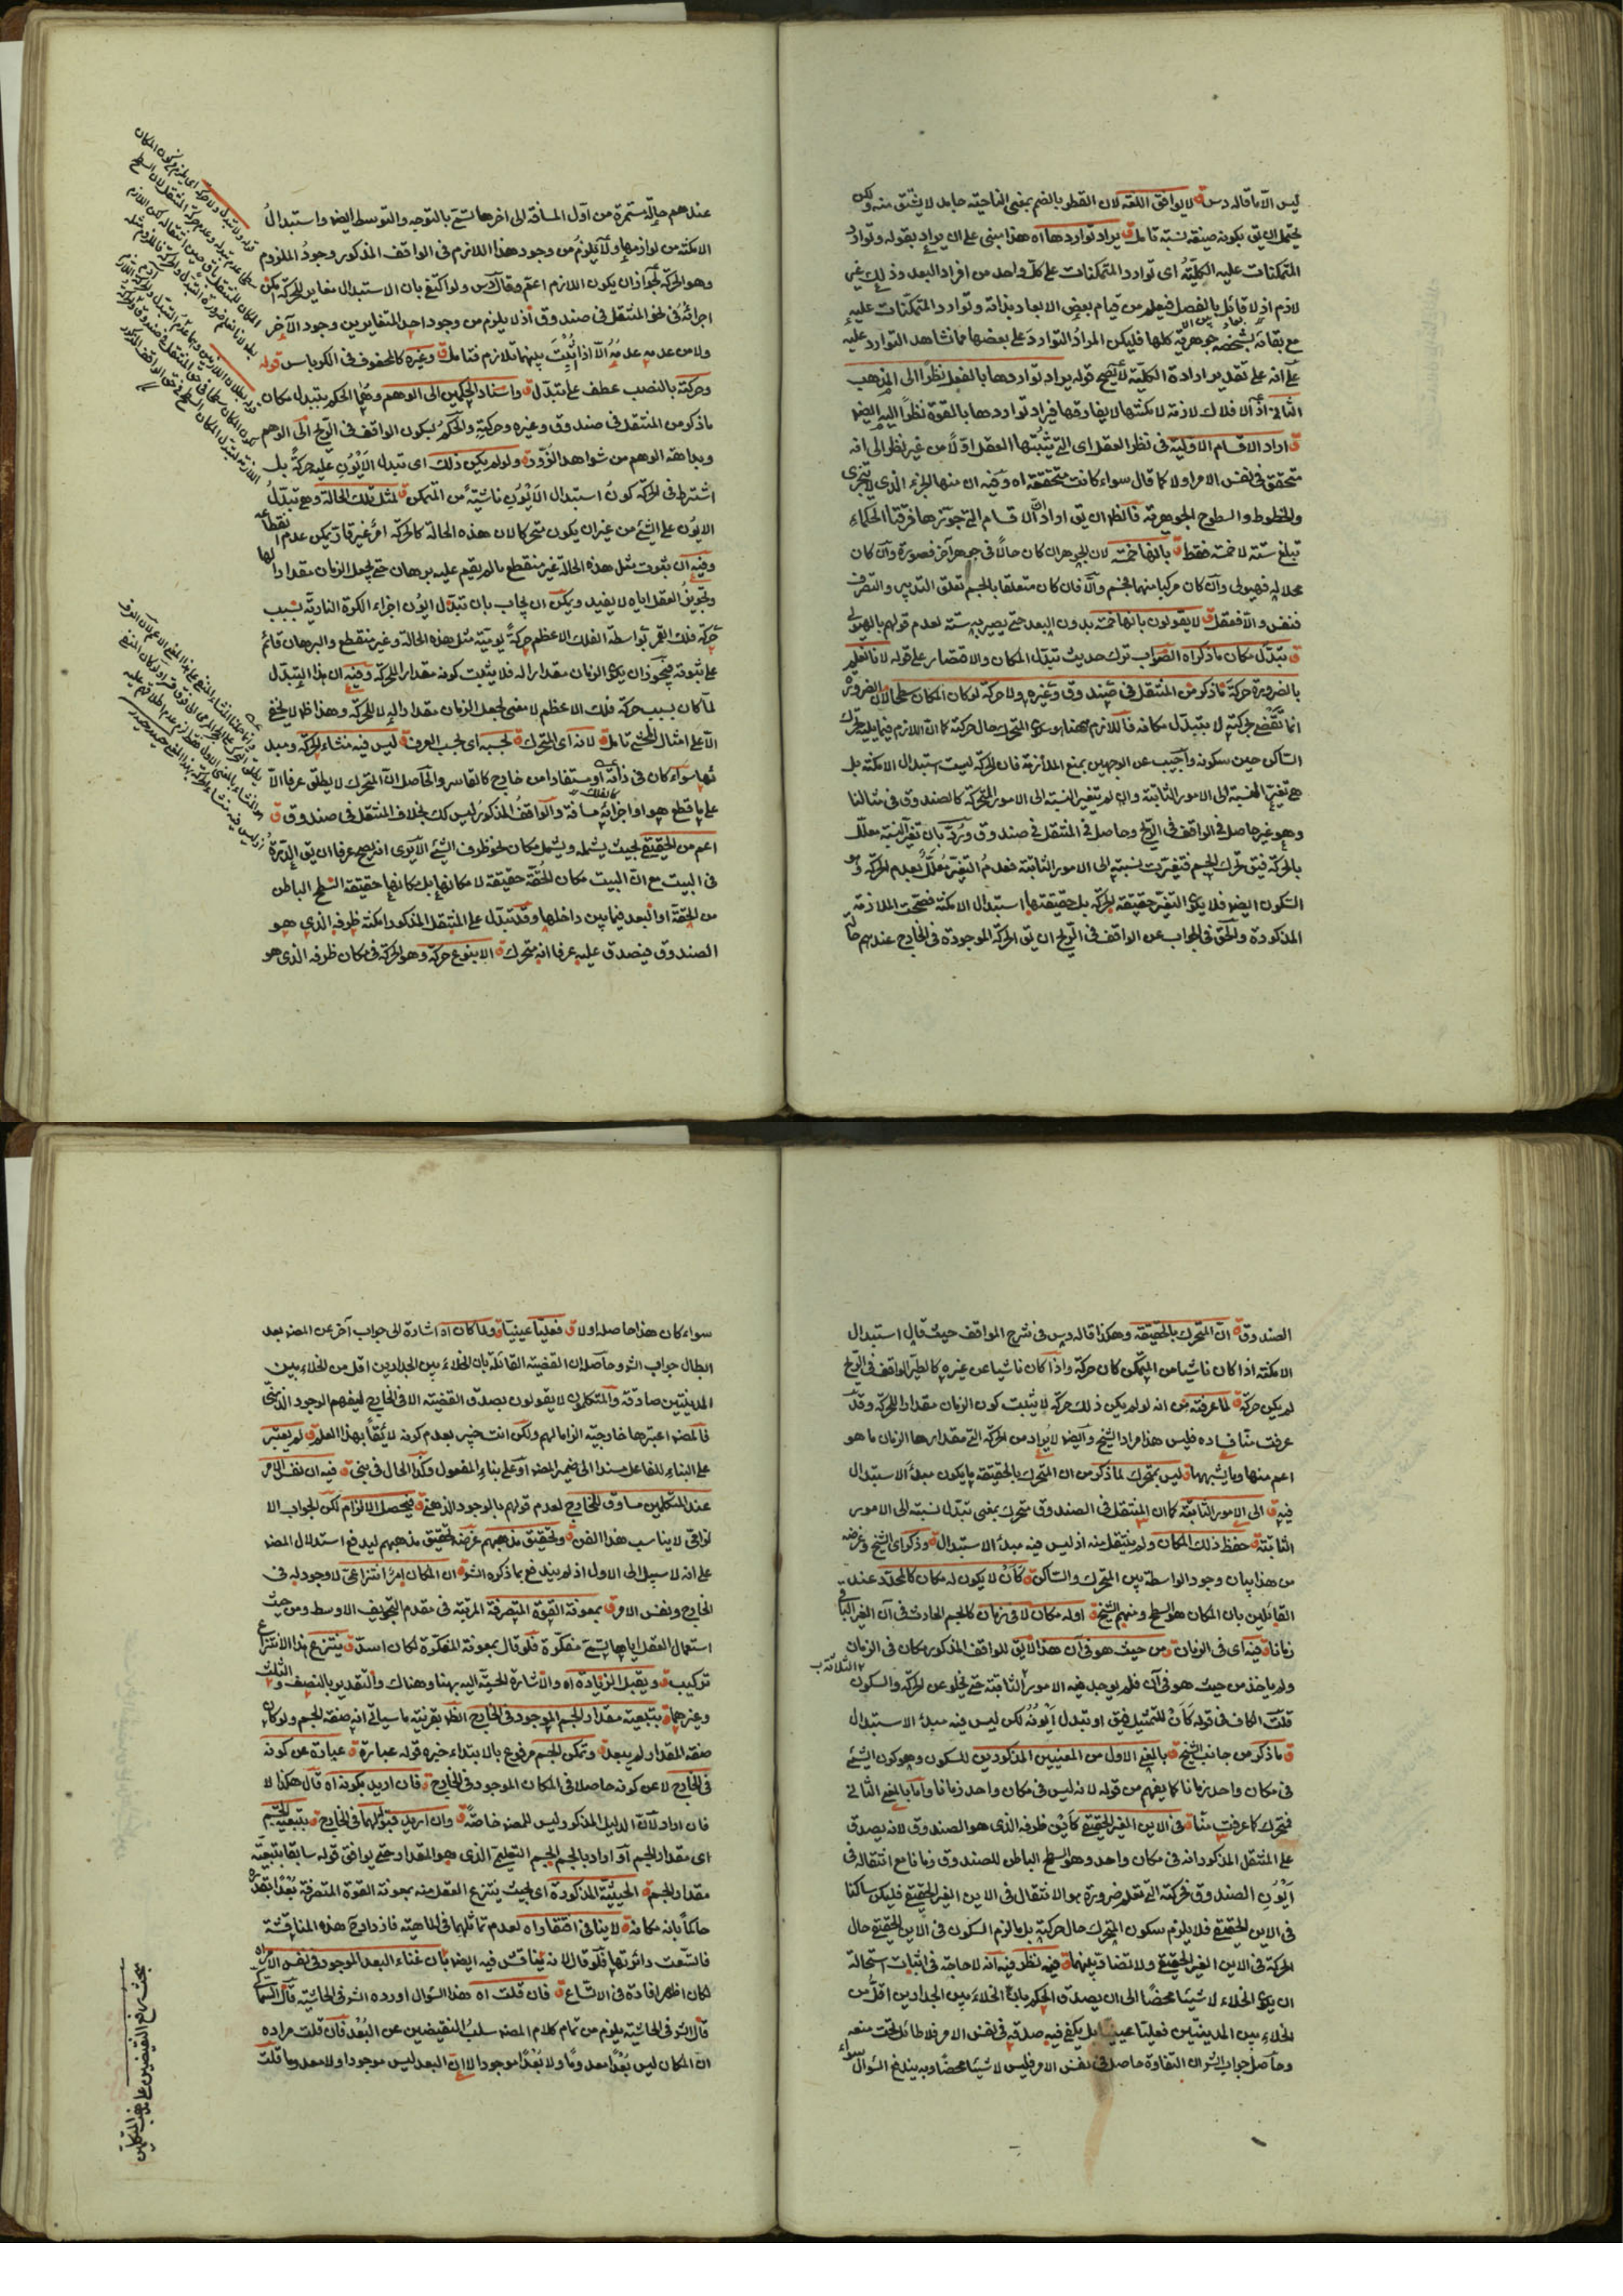 ليس الا ما قاله دس ق لا يوافق اللغة لان القطر بالضم بمعنى الناحية جامد لا يشتق منه ولكن
يحتمل ان يق بكونه صيغة نسبة تامل ق يراد تواردها اه هذا مبنى على ان يراد بقوله وتوارد
المتمكنات عليه الكلية اى توارد المتمكنات على كل واحد من افراد البعد وذلك غير
لازم اذ لا قائل بالفصل فيعلم من قيام بعض الابعاد بذاته وتوارد المتمكنات عليه
مع بقائه بشخصه جوهرية كلها فليكن المراد التوارد على بعضها مما نشاهد التوارد عليه
على انه على تقدير ارادة الكلية لا يصح قوله يراد تواردها بالفعل نظرا الى المذهب
الثانى اذ الافلاك لازمة لامكنتها لا يفارقها فيراد تواردها بالقوة نظرا اليه ايضا
ق اراد الاقسام الاولية فى نظر العقل اى التى يثبتها العقل اولا من غير نظر الى انه
متحقق فى نفس الامر او لا كما قال سواء كانت متحققة اه وفيه ان منها الجزء الذى لا يتجزى
والخطوط والسطوح الجوهرية فالظ ان يق اراد الاقسام التى جوزها فرقتا الحكماء
تبلغ ستة لا خمسة فقط ق بانها خمسة لان الجوهر ان كان حالا فى جوهر آخر فصورة وان كان
محلا له فهيولى وان كان مركبا منهما فجسم والا فان كان متعلقا بالجسم تعلق التدبير والتصرف
فنفس والا فعقل ق لا يقولون بانها خمسة بدون البعد حتى يصير به ستة لعدم قولهم بالهيولى
ق تبدل مكان ما ذكراه الصواب ترك حديث تبدل المكان والاقتصار على قوله لانا نعلم
بالضرورة حركة ما ذكر من المنتقل فى صندوق وغيره ولا حركة لو كان المكان سطحا لان الضرورة
انما تقضى بحركته لا بتبدل مكانه فاللازم ههنا هو سكون المتحرك حال حركته كما ان اللازم فيما يليه تحرك
الساكن حين سكونه واجيب عن الوجهين بمنع الملازمة فان الحركة ليست استبدال الامكنة بل
هى تغير النسبة الى الامور الثابتة وان لم تتغير النسبة الى الامور المتحركة كالصندوق فى مثالنا
وهو غير حاصل فى الواقف فى الريح وحاصل فى المنتقل فى صندوق ورد بان تغير النسبة معلل
بالحركة فيق تحرك الجسم فتغيرت نسبته الى الامور الثابتة فعدم التغير معلل بعدم الحركة وهو
السكون ايضا فلا يكون التغير حقيقة الحركة بل حقيقتها استبدال الامكنة فصحت الملازمة
المذكورة والحق فى الجواب عن الواقف فى الريح ان يق الحركة الموجودة فى الخارج عندهم حالة
عندهم حالة مستمرة من اول المسافة الى اخرها تسمى بالتوجه والتوسط ايضا واستبدال
الامكنة من لوازمها ولا يلزم من وجود هذا اللازم فى الواقف المذكور وجود الملزوم
وهو الحركة لجواز ان يكون اللازم اعم وقال دس ولو اكتفى بان الاستبدال مغاير للحركة امكن
اجرائه فى نحو المنتقل فى صندوق اذ لا يلزم من وجود احد المتغايرين وجود الآخر
ولا من عدمه عدمه الا اذا ثبت بينهما تلازم فتامل ق وغيره كالمحفوف فى الكرباس قوله
وحركته بالنصب عطف على تبدل ق واسناد الحكمين الى الوهم وهما الحكم بتبدل مكان
ما ذكر من المنتقل فى صندوق وغيره وحركته والحكم بكون الواقف فى الريح الى الوهم
وبداهة الوهم من شواهد الزور ق ولو لم يكن ذلك اى تبدل الايون عليه حركة بل
اشترط فى الحركة كون استبدال الايون ناشئة من المتمكن ق لمثل تلك الحالة وهى تبدل
الايون على الشئ من غير ان يكون متحركا لان هذه الحالة كالحركة امر غير قار يمكن عدم انقطاعه
وفيه ان ثبوت مثل هذه الحالة غير منقطع ما لم يقم عليه برهان حتى يجعل الزمان مقدارا لها
وتجويز العقل اياه لا يفيد ويمكن ان يجاب بان تبدل ايون اجزاء الكرة النارية بسبب
حركة فلك القمر بواسطة الفلك الاعظم حركة يومية مثل هذه الحالة وغير منقطع والبرهان قائم
على ثبوته فيجوز ان يكون الزمان مقدارا له فلا يثبت كونه مقدارا للحركة وفيه ان هذا التبدل
لما كان بسبب حركة فلك الاعظم لا معنى لجعل الزمان مقدارا له لا للحركة وهذا ظ لا يخفى
الا على امثال المحشى تامل ق لانه اى المتحرك ق بحسبه اى بحسب العرف ق ليس فيه منشاء للحركة ومبد
ئها سواء كان فى ذاته او مستفادا من خارج كالقاسر والحاصل ان المتحرك لا يطلق عرفا الا
على ما قطع هو او اجزائه مسافة والواقف المذكور ليس كك بخلاف المنتقل فى صندوق ق
اعم من الحقيقى بحيث يشمله ويشمل مكان نحو ظرف الشئ الا يرى انه يصح عرفا ان يق الدرة
فى البيت مع ان البيت مكان الحقة حقيقة لا مكانها بل مكانها حقيقة السطح الباطن
من الحقة او البعد فيما بين داخلها وقد تبدل على المنتقل المذكور امكنة ظرفه الذى هو
الصندوق فيصدق عليه عرفا انه متحرك ق الا بنوع حركة وهو الحركة فى مكان ظرفه الذى هو
الصندوق ق ان المتحرك بالحقيقة وهكذا قاله دس فى شرح المواقف حيث قال استبدال
الامكنة اذا كان ناشيا من المتمكن كان حركة واذا كان ناشيا عن غيره كالطير الواقف فى الريح
لم يكن حركة ق لما عرفته من انه لو لم يكن ذلك حركة لا يثبت كون الزمان مقدارا للحركة وقد
عرفت منا فساده فليس هذا مراد الشيخ وايضا لا يراد من الحركة التى مقدارها الزمان ما هو
اعم منها وما يشبهها ق ليس بمتحرك لما ذكر من ان المتحرك بالحقيقة ما يكون مبدأ الاستبدال
فيه ق الى الامور الثابتة كما ان المنتقل فى الصندوق متحرك بمعنى تبدل نسبته الى الامور
الثابتة ق حفظ ذلك المكان ولم ينتقل منه اذ ليس فيه مبدأ الاستبدال ق وذكر اى الشيخ وغرضه
من هذا بيان وجود الواسطة بين المتحرك والساكن ق كان لا يكون له مكان كالمحدد عند
القائلين بان المكان هو السطح ومنهم الشيخ ق اوله مكان لا فى زمان كالجسم الحادث فى آن الغير الباقى
زمانا ق فيه اى فى الزمان ق من حيث هو فى آن هذا لا يق للواقف المذكور مكان فى الزمان
ولم ياخذ من حيث هو فى آن فلم يوجد فيه الامور الثابتة حتى يخلو عن الحركة والسكون
قلت الكاف فى قوله كان للتمثيل فيق او تبدل ايونه لكن ليس فيه مبدأ الاستبدال
ق ما ذكر من جانب الشيخ ق بالمعنى الاول من المعنيين المذكورين للسكون وهو كون الشئ
فى مكان واحد زمانا كما يفهم من قوله لانه ليس فى مكان واحد زمانا واما بالمعنى الثانى
فمتحرك كما عرفت منا ق فى الاين الغير الحقيقى كاين ظرفه الذى هو الصندوق لانه يصدق
على المنتقل المذكور انه فى مكان واحد وهو السطح الباطن للصندوق زمانا مع انتقاله فى
ايون الصندوق فحركته التى تعلم ضرورة هو الانتقال فى الاين الغير الحقيقى فليكن ساكنا
فى الاين الحقيقى فلا يلزم سكون المتحرك حال حركته بل ما لزم السكون فى الاين الحقيقى حال
الحركة فى الاين الغير الحقيقى ولا تضاد بينهما ق فيه نظر فيه انه لا حاجة فى اثبات استحالة
ان يكون الخلاء لا شيئا محضا الى ان يصدق الحكم بان الخلاء بين الجدارين اقل من
الخلاء بين المدينتين فعليا عينيا بل يكفى فيه صدقه فى نفس الامر فلا طائل تحت منعه
وحاصل جواب الش ان التفاوة حاصل فى نفس الامر فليس لا شيئا محضا وبه يندفع السؤال سواء
سواء كان هذا حاصله اولا ق فعليا عينيا ق ولما كان اه اشارة الى جواب آخر عن المصنف بعد
ابطال جواب الش وحاصل ان القضية القائلة بان الخلاء بين الجدارين اقل من الخلاء بين
المدينتين صادقة والمتكلمون لا يقولون بصدق القضية الا فى الخارج لنفيهم الوجود الذهنى
فالمصنف اعتبرها خارجية الزاما لهم ولكن انت خبير بعدم كونه لائقا بهذا العلم ق لم يعتبر
على البناء للفاعل مسندا الى ضمير المصنف او على بناء المفعول وكذا الحال فى بنى ق فيه ان نفس الامر
عند المتكلمين مساوق للخارج لعدم قولهم بالوجود الذهنى ق فيحصل الالزام لكن الجواب الا
لزامى لا يناسب هذا الفن ق وتحقيق مذهبهم غرضه تحقيق مذهبهم ليدفع استدلال المصنف
على انه لا سبيل الى الاول اذ لم يندفع بما ذكره الش ق ان المكان امر انتزاعى لا وجود له فى
الخارج ونفس الامر ق بمعونة القوة المتصرفة المرتبة فى مقدم التجويف الاوسط ومن حيث
استعمال العقل اياها يسمى مفكرة فلو قال بمعونة المفكرة لكان اسد ق ينتزع هذا الانتزاع
تركيب ق ويقبل الزيادة اه والاشارة الحسية اليه بهنا وهناك والتقدير بالنصف والثلث
وغيرهما ق بتبعية مقدار الجسم الموجود فى الخارج الظ بقرينة ما سياتى انه صفة الجسم ولو كان
صفة المقدار لم يبعد ق وتمكن الجسم مرفوع بالابتداء خبره قوله عبارة ق عبارة عن كونه
فى الخارج لا عن كونه حاصلا فى المكان الموجود فى الخارج ق فان اريد بكونه اه قال هكذا لا
فان اراد لان الدليل المذكور ليس للمصنف خاصة ق وان اريد قبولهما فى الخارج ق بتبعية الجسم
اى مقدار الجسم او اراد بالجسم الجسم التعليمى الذى هو المقدار حتى يوافق قوله سابقا بتبعية
مقدار الجسم ق الحيثية المذكورة اى بحيث ينتزع العقل منه بمعونة القوة المتصرفة بعدا بقدره
حاكما بانه مكانه ق لا ينافى افتقاراه لعدم تماثلهما فى الماهية فاذا ادرج هذه المناقشة
فاتسعت دائرتها فلو قال لانه يناقش فيه ايضا بان غناء البعد الموجود فى نفس الامر اه
لكان اظهر افادة فى الاتساع ق فان قلت اه هذا السؤال اورده الش فى الحاشية قال السماكى
قال الش فى الحاشية يلزم من تمام كلام المصنف سلب النقيضين عن البعد فان قلت مراده
ان المكان ليس بعدا معدوما ولا بعدا موجودا لا ان البعد ليس موجودا ولا معدوما قلت
مبحث رفع النقيضين على مذهب المتكلمين